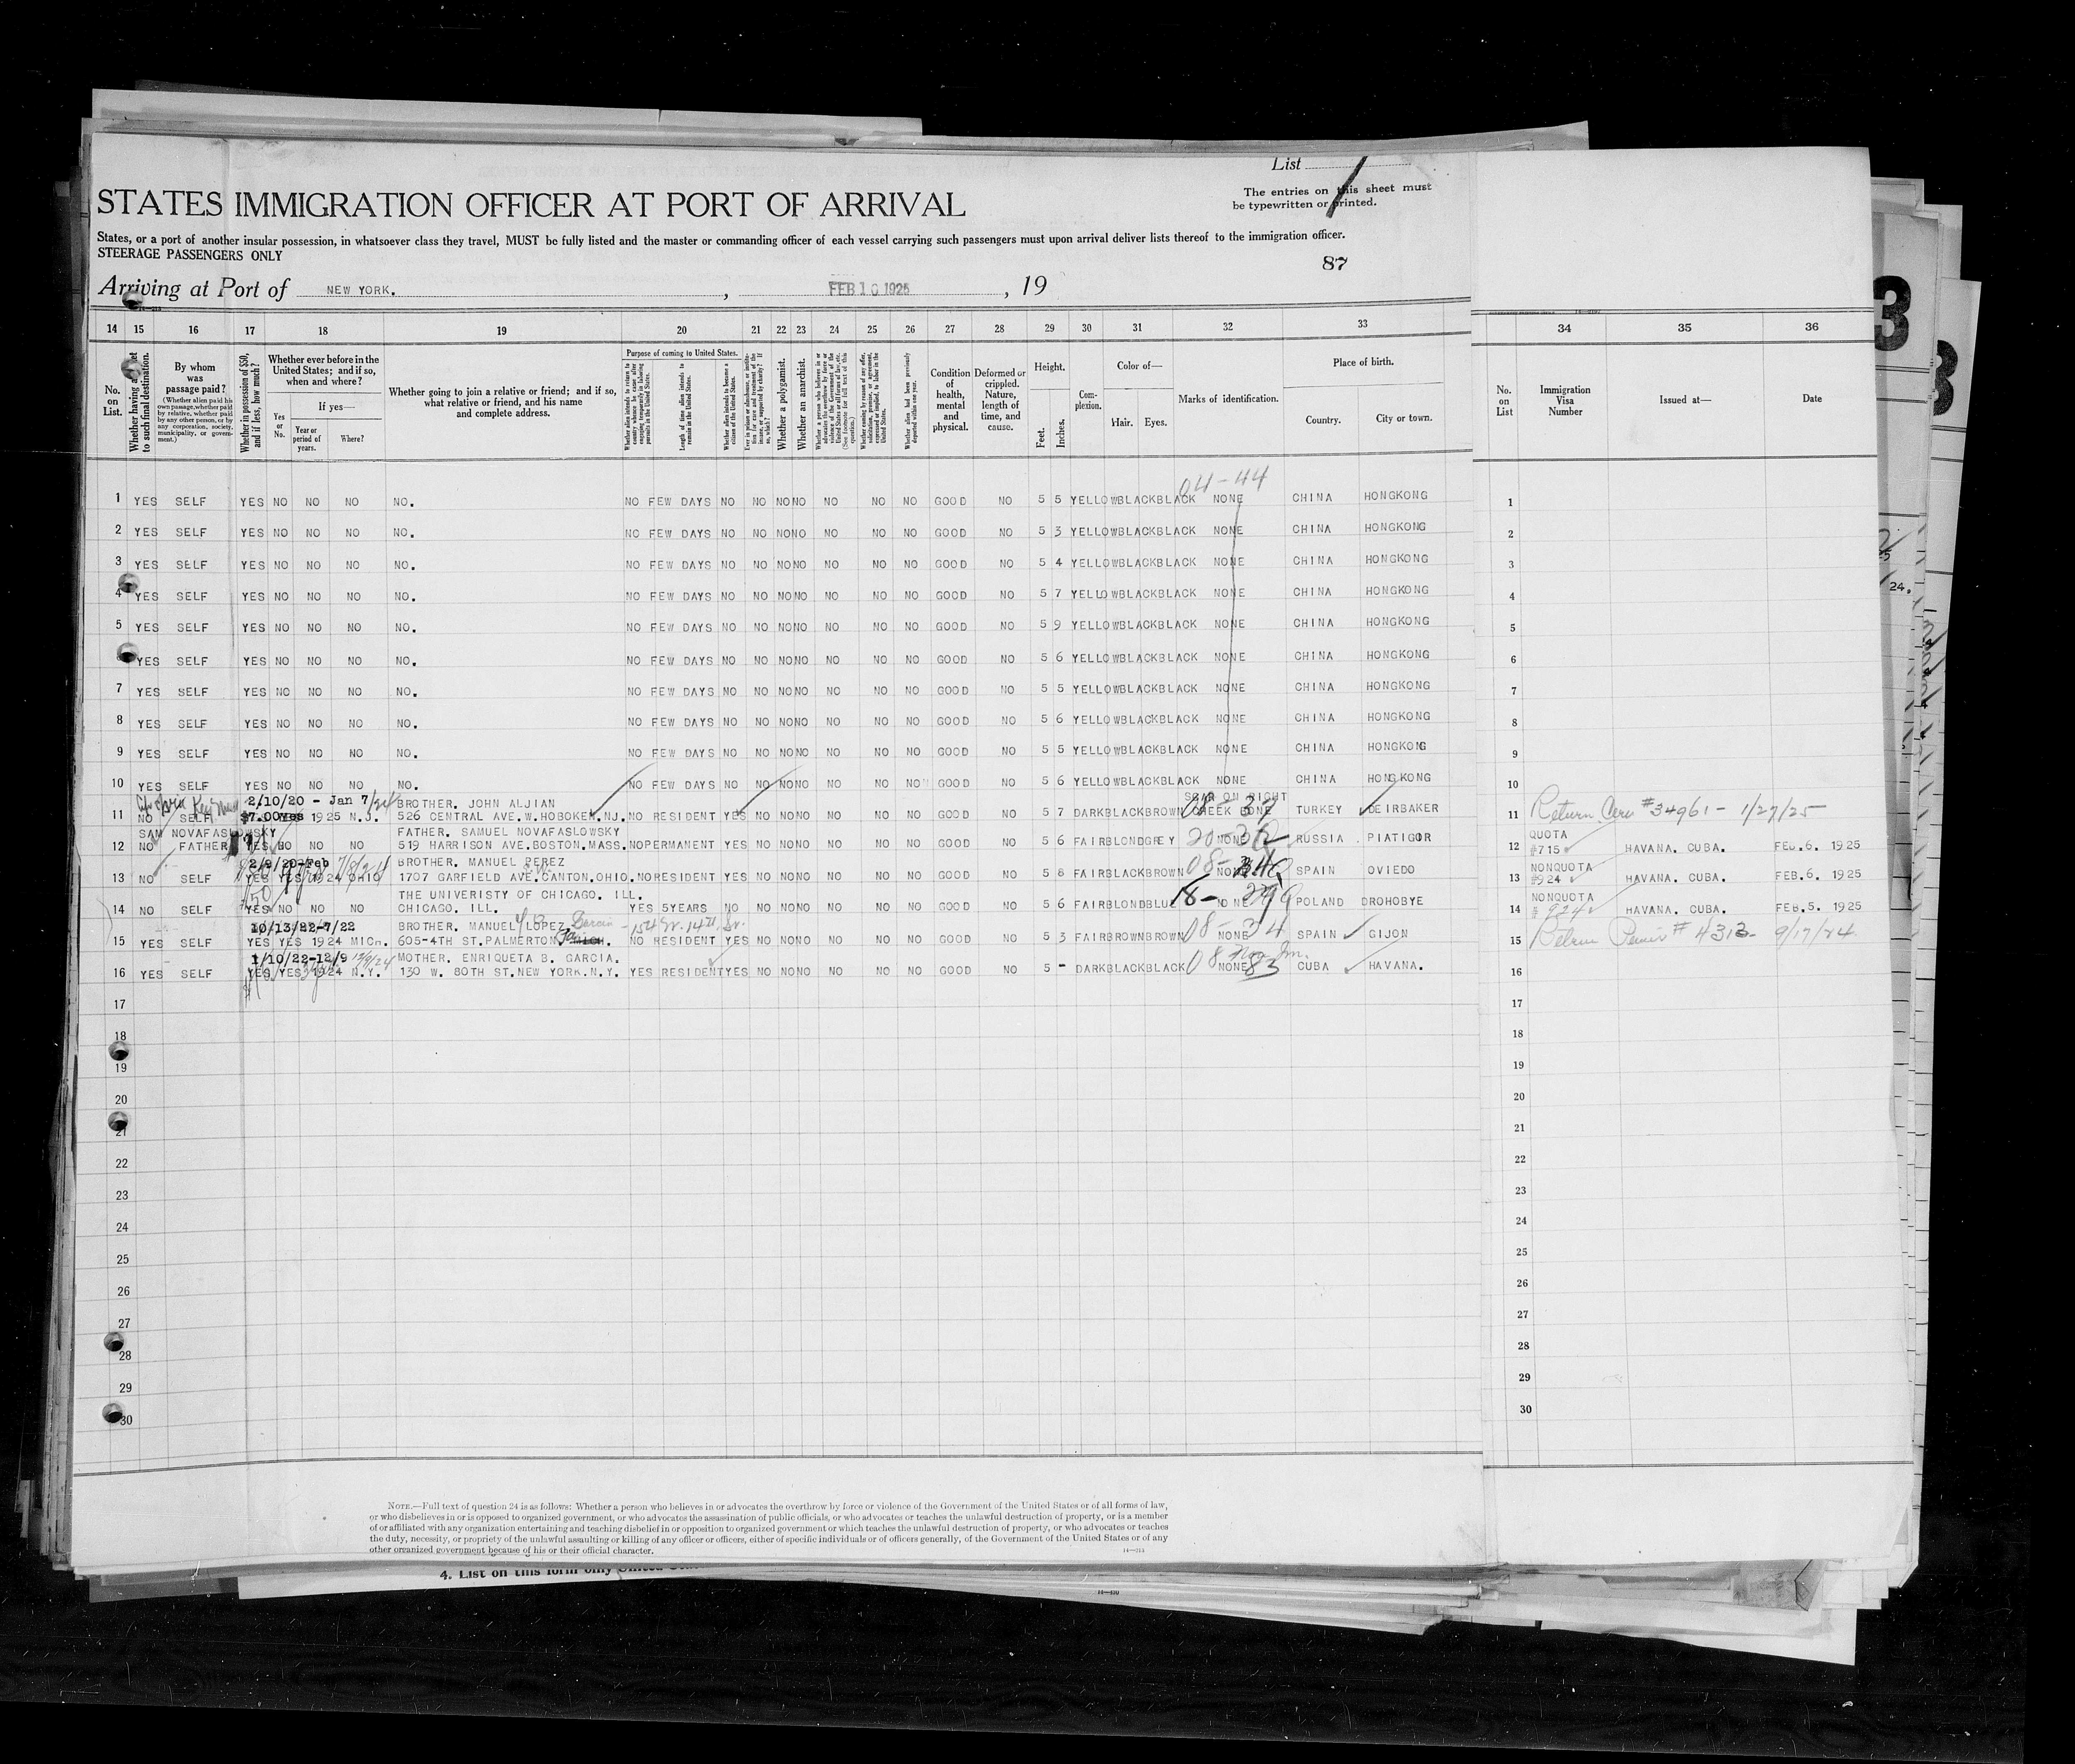 List
The entries on this sheet must
be typewritten or printed.
STATES IMMIGRATION OFFICER AT PORT OF ARRIVAL
States, or a port of another insular possession, in whatsoever class they travel, MUST be fully listed and the master or commanding officer of each vessel carrying such passengers must upon arrival deliver lists thereof to the immigration officer.
STEERAGE PASSENGERS ONLY
87
Arriving at Port of NEW YORK. , FEB 10 1925 , 19
14 15 16 17 18 19 20 21 22 23 24 25 26 27 28 29 30 31 32 33 34 35 36
No. on List.
By whom was passage paid?
(Whether alien paid his own passage, whether paid by relative, whether paid by any other person, or by any corporation, society, municipality, or government.)
Whether in possession of $50, and if less, how much?
Whether ever before in the United States; and if so, when and where?
Yes or No.
If yes—
Year or period of years.
Where?
Whether going to join a relative or friend; and if so, what relative or friend, and his name and complete address.
Purpose of coming to United States.
Length of time alien intends to remain in the United States.
Whether alien intends to become a citizen of the United States.
Whether a polygamist.
Whether an anarchist.
Condition of health, mental and physical.
Deformed or crippled. Nature, length of time, and cause.
Height.
Feet.
Inches.
Complexion.
Color of—
Hair. Eyes.
Marks of identification.
Place of birth.
Country. City or town.
No. on List
Immigration Visa Number
Issued at—
Date
04-44
1 YES SELF YES NO NO NO NO. NO FEW DAYS NO NO NO NO NO NO NO GOOD NO 5 5 YELLOW BLACK BLACK NONE CHINA HONGKONG 1
2 YES SELF YES NO NO NO NO. NO FEW DAYS NO NO NO NO NO NO NO GOOD NO 5 3 YELLOW BLACK BLACK NONE CHINA HONGKONG 2
3 YES SELF YES NO NO NO NO. NO FEW DAYS NO NO NO NO NO NO NO GOOD NO 5 4 YELLOW BLACK BLACK NONE CHINA HONGKONG 3
4 YES SELF YES NO NO NO NO. NO FEW DAYS NO NO NO NO NO NO NO GOOD NO 5 7 YELLOW BLACK BLACK NONE CHINA HONGKONG 4
5 YES SELF YES NO NO NO NO. NO FEW DAYS NO NO NO NO NO NO NO GOOD NO 5 9 YELLOW BLACK BLACK NONE CHINA HONGKONG 5
YES SELF YES NO NO NO NO. NO FEW DAYS NO NO NO NO NO NO NO GOOD NO 5 6 YELLOW BLACK BLACK NONE CHINA HONGKONG 6
7 YES SELF YES NO NO NO NO. NO FEW DAYS NO NO NO NO NO NO NO GOOD NO 5 5 YELLOW BLACK BLACK NONE CHINA HONGKONG 7
8 YES SELF YES NO NO NO NO. NO FEW DAYS NO NO NO NO NO NO NO GOOD NO 5 6 YELLOW BLACK BLACK NONE CHINA HONGKONG 8
9 YES SELF YES NO NO NO NO. NO FEW DAYS NO NO NO NO NO NO NO GOOD NO 5 5 YELLOW BLACK BLACK NONE CHINA HONGKONG 9
10 YES SELF YES NO NO NO NO. NO FEW DAYS NO NO NO NO NO NO NO GOOD NO 5 6 YELLOW BLACK BLACK NONE CHINA HONGKONG 10
2/10/20 - Jan 7/24 BROTHER. JOHN ALJIAN SCAR ON RIGHT
11 NO SELF $7.00 Yes 1925 N.J. 526 CENTRAL AVE.W.HOBOKEN.NJ. NO RESIDENT YES NO NO NO NO NO NO GOOD NO 5 7 DARK BLACK BROWN CHEEK BONE TURKEY DEIRBAKER 11 Return #34961 - 1/27/25
SAM NOVAFASLOWSKY FATHER. SAMUEL NOVAFASLOWSKY QUOTA
12 NO FATHER YES NO NO NO 519 HARRISON AVE.BOSTON.MASS. NO PERMANENT YES NO NO NO NO NO NO GOOD NO 5 6 FAIR BLOND GREY NONE RUSSIA PIATIGOR 12 #715 HAVANA. CUBA. FEB.6. 1925
2/9/20-Feb BROTHER. MANUEL PEREZ NONQUOTA
13 NO SELF YES YES 1924 OHIO 1707 GARFIELD AVE.CANTON.OHIO. NO RESIDENT YES NO NO NO NO NO NO GOOD NO 5 8 FAIR BLACK BROWN NONE SPAIN OVIEDO 13 #924 HAVANA. CUBA. FEB.6. 1925
THE UNIVERISTY OF CHICAGO. ILL. NONQUOTA
14 NO SELF YES NO NO NO CHICAGO. ILL. YES 5YEARS NO NO NO NO NO NO NO GOOD NO 5 6 FAIR BLOND BLUE NONE POLAND DROHOBYE 14 # 924 HAVANA. CUBA. FEB.5. 1925
10/13/22-7/22 BROTHER. MANUEL LOPEZ
15 YES SELF YES YES 1924 MICH. 605-4TH ST.PALMERTON Pa MICH. NO RESIDENT YES NO NO NO NO NO NO GOOD NO 5 3 FAIR BROWN BROWN 08-34 NONE SPAIN GIJON 15 Return Permit # 4313- 9/17/24.
1/10/22-12/9 12/9/24 MOTHER. ENRIQUETA B. GARCIA.
16 YES SELF YES YES 1924 N.Y. 130 W. 80TH ST.NEW YORK.N.Y. YES RESIDENT YES NO NO NO NO NO NO GOOD NO 5 - DARK BLACK BLACK NONE 83 CUBA HAVANA. 16
17 17
18 18
19 19
20 20
21 21
22 22
23 23
24 24
25 25
26 26
27 27
28 28
29 29
30 30
NOTE.—Full text of question 24 is as follows: Whether a person who believes in or advocates the overthrow by force or violence of the Government of the United States or of all forms of law,
or who disbelieves in or is opposed to organized government, or who advocates the assassination of public officials, or who advocates or teaches the unlawful destruction of property, or is a member
of or affiliated with any organization entertaining and teaching disbelief in or opposition to organized government or which teaches the unlawful destruction of property, or who advocates or teaches
the duty, necessity, or propriety of the unlawful assaulting or killing of any officer or officers, either of specific individuals or of officers generally, of the Government of the United States or of any
other organized government because of his or their official character.
4. List on this form only